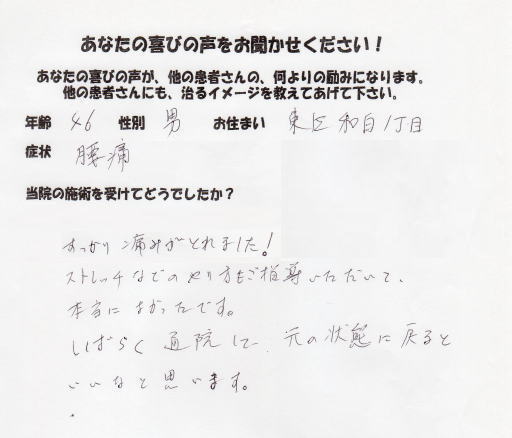 あなたの喜びの声をお聞かせください!
あなたの喜びの声が、他の患者さんの、何よりの励みになります。
他の患者さんにも、治るイメージを教えてあげて下さい。
年齢 46 性別 男 お住まい 東区和白1丁目
症状 腰痛
当院の施術を受けてどうでしたか?
すっかり痛みがとれました!
ストレッチなどのやり方もご指導いただいて、
本当によかったです。
しばらく通院して、元の状態に戻ると
いいなと思います。